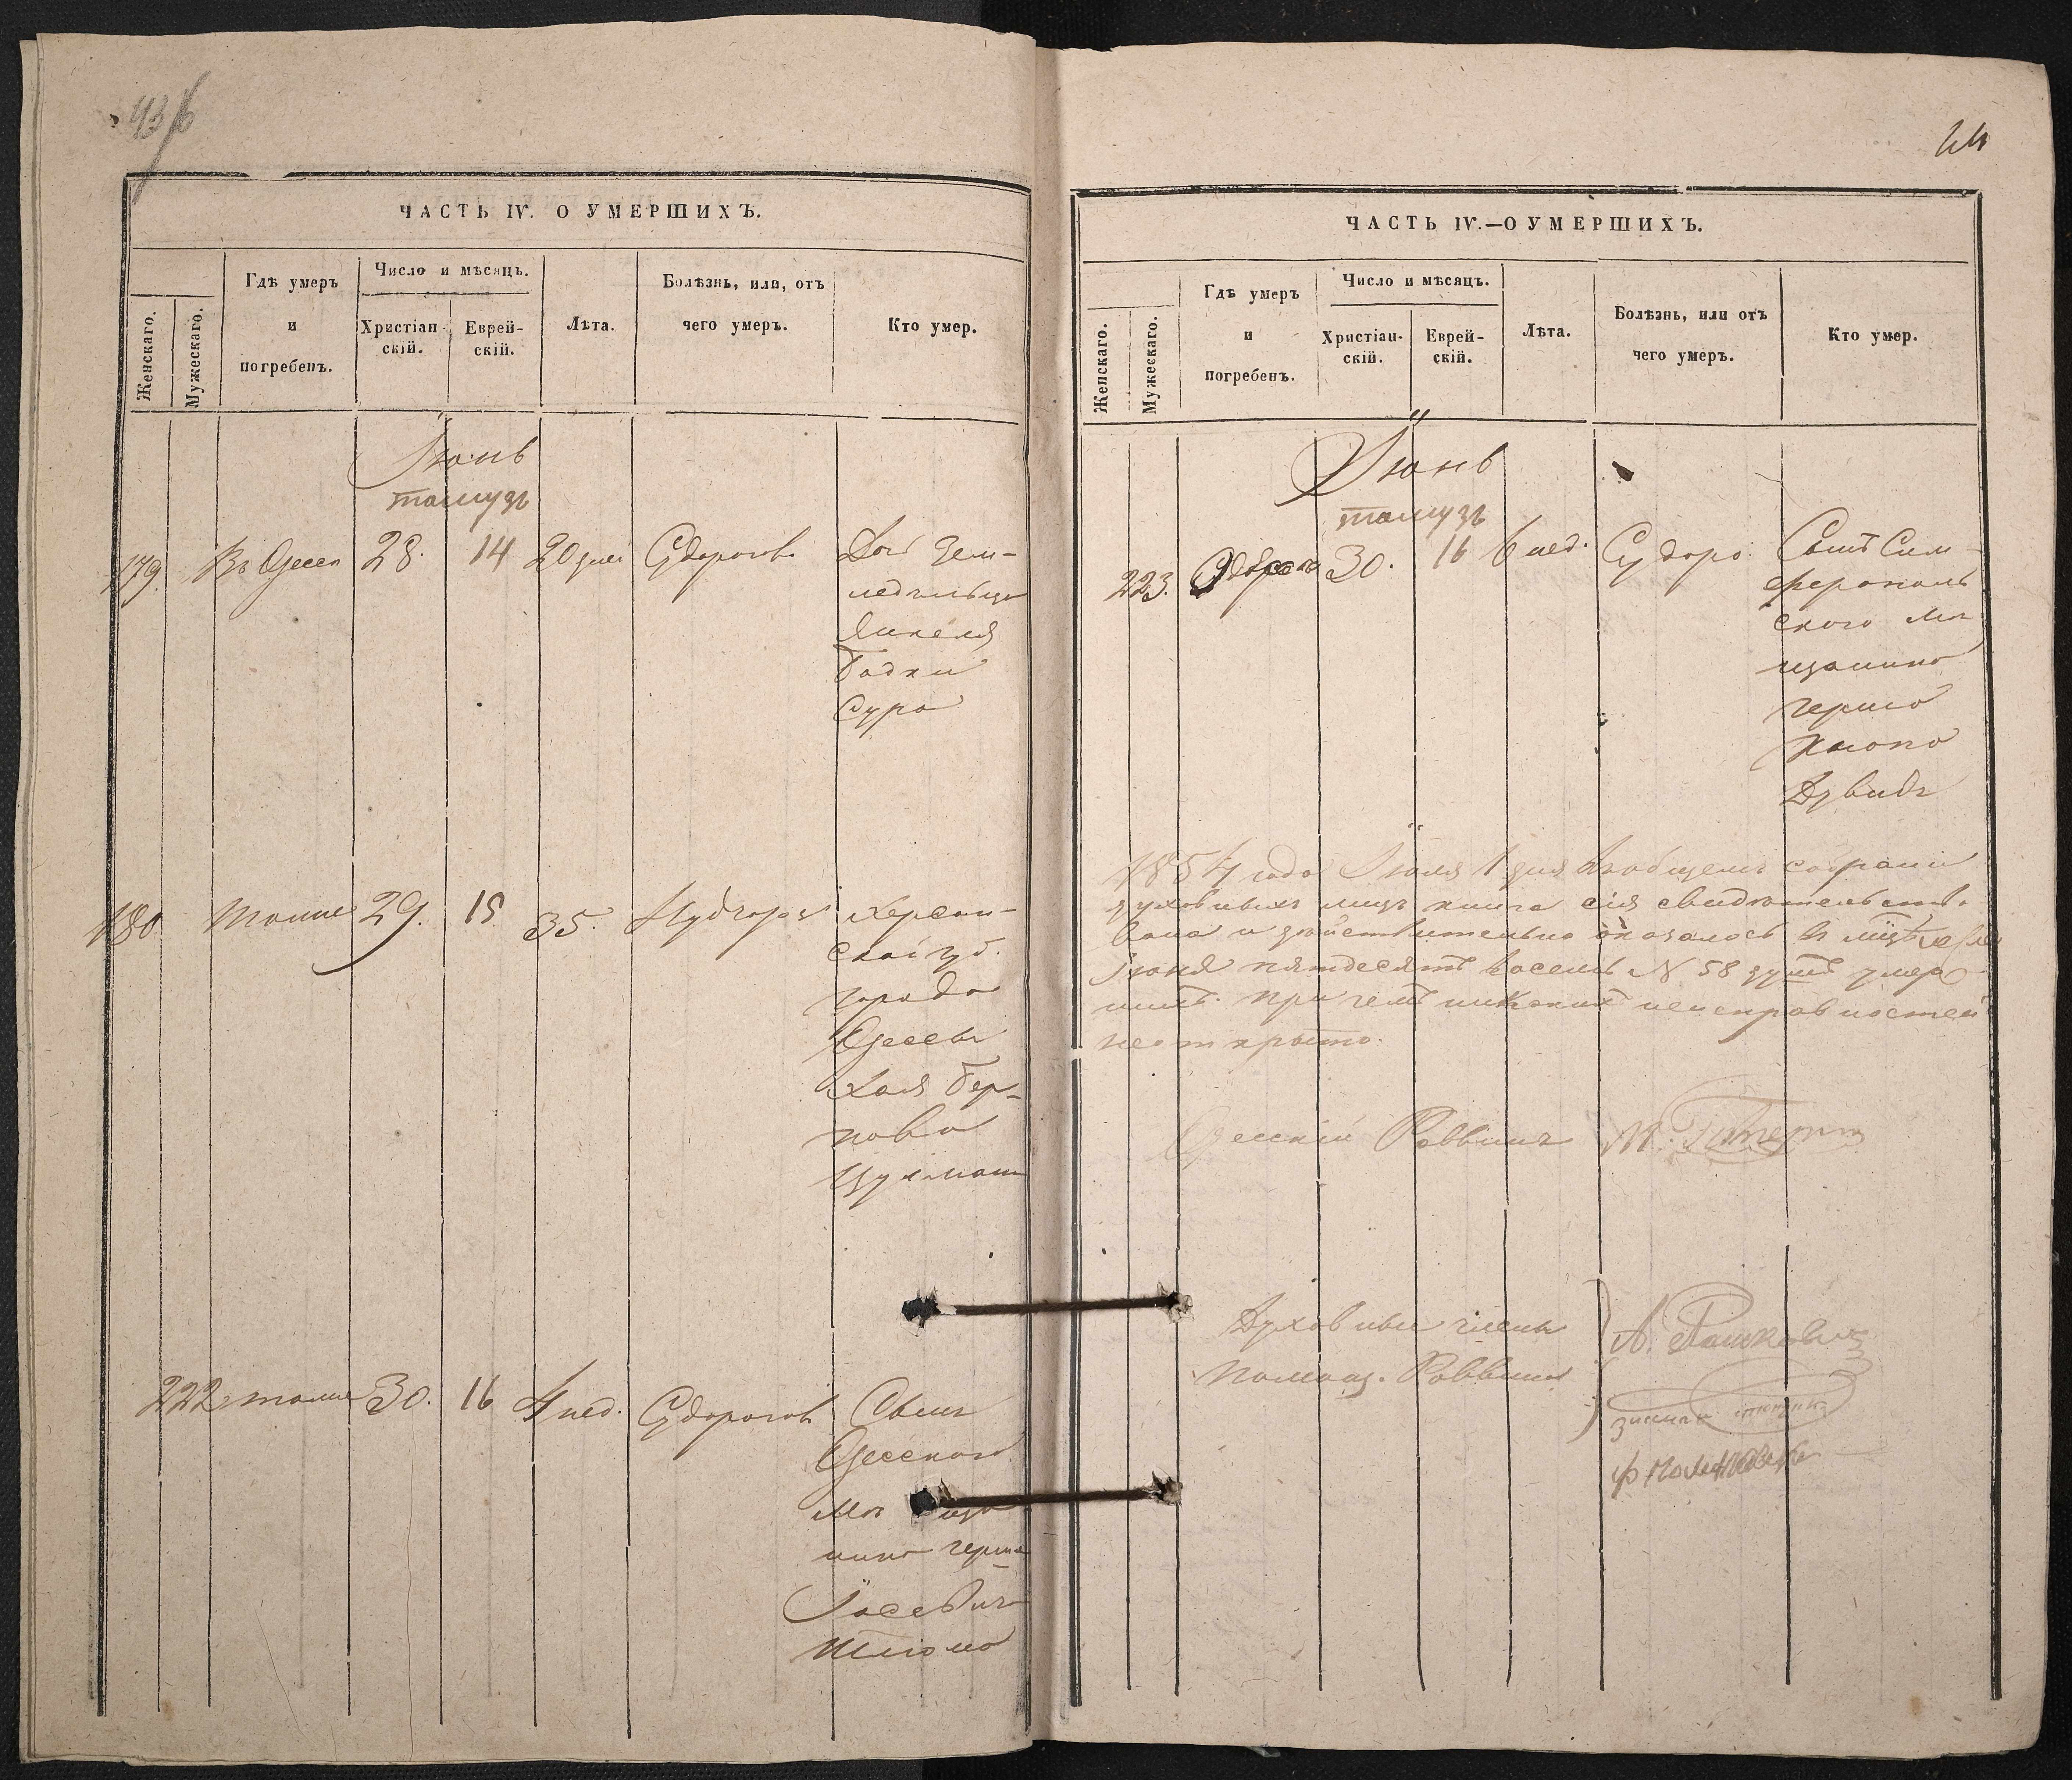 43/б
ЧАСТЬ IV. О УМЕРШИХЪ.
Женскаго.
Мужескаго.
Гдѣ умеръ
и
погребенъ.
Число и мѣсяцъ.
Христіан-
скій.
Еврей-
скій.
Лѣта.
Болѣзнь, или, отъ
чего умеръ.
Кто умер.
Іюнь
тамузъ
179. Въ Одесѣ 28. 14 20 дней Судорогов Дочь Зем-
ледѣльца
Янкеля
Бадки
Сура
180 Тоже 29. 15 35.
Херсон-
ской губ.
города
Одессы
Хая Бер-
кова
222 тоже 30. 16 4 нед. Судорогов Сынъ
Одесскаго
мѣщa
нина Герша
Іосевича
Шлиома
44
ЧАСТЬ IV.—О УМЕРШИХЪ.
Женскаго.
Мужескаго.
Гдѣ умеръ
и
погребенъ.
Число и мѣсяцъ.
Христіан-
скій.
Еврей-
скій.
Лѣта.
Болѣзнь, или отъ
чего умеръ.
Кто умер.
Іюнь
тамузъ
223. 30. 16 6 нед. Судоро Сынъ Сим-
ферополь
ского мѣ
щанина
Герша
Давидъ
1854 года Іюля 1 дня въ общемъ собраніи
духовныхъ лицъ книга сія свидѣтельств.
вана и дѣйствительно оказалось въ
Іюня пятдесятъ восемь № 58 душъ умер
шихъ. При чемъ никакихъ неисправностей
не открыто.
Одесскій Раввинъ М.
Духовные члены А. Рашкович
Помощ. Раввина